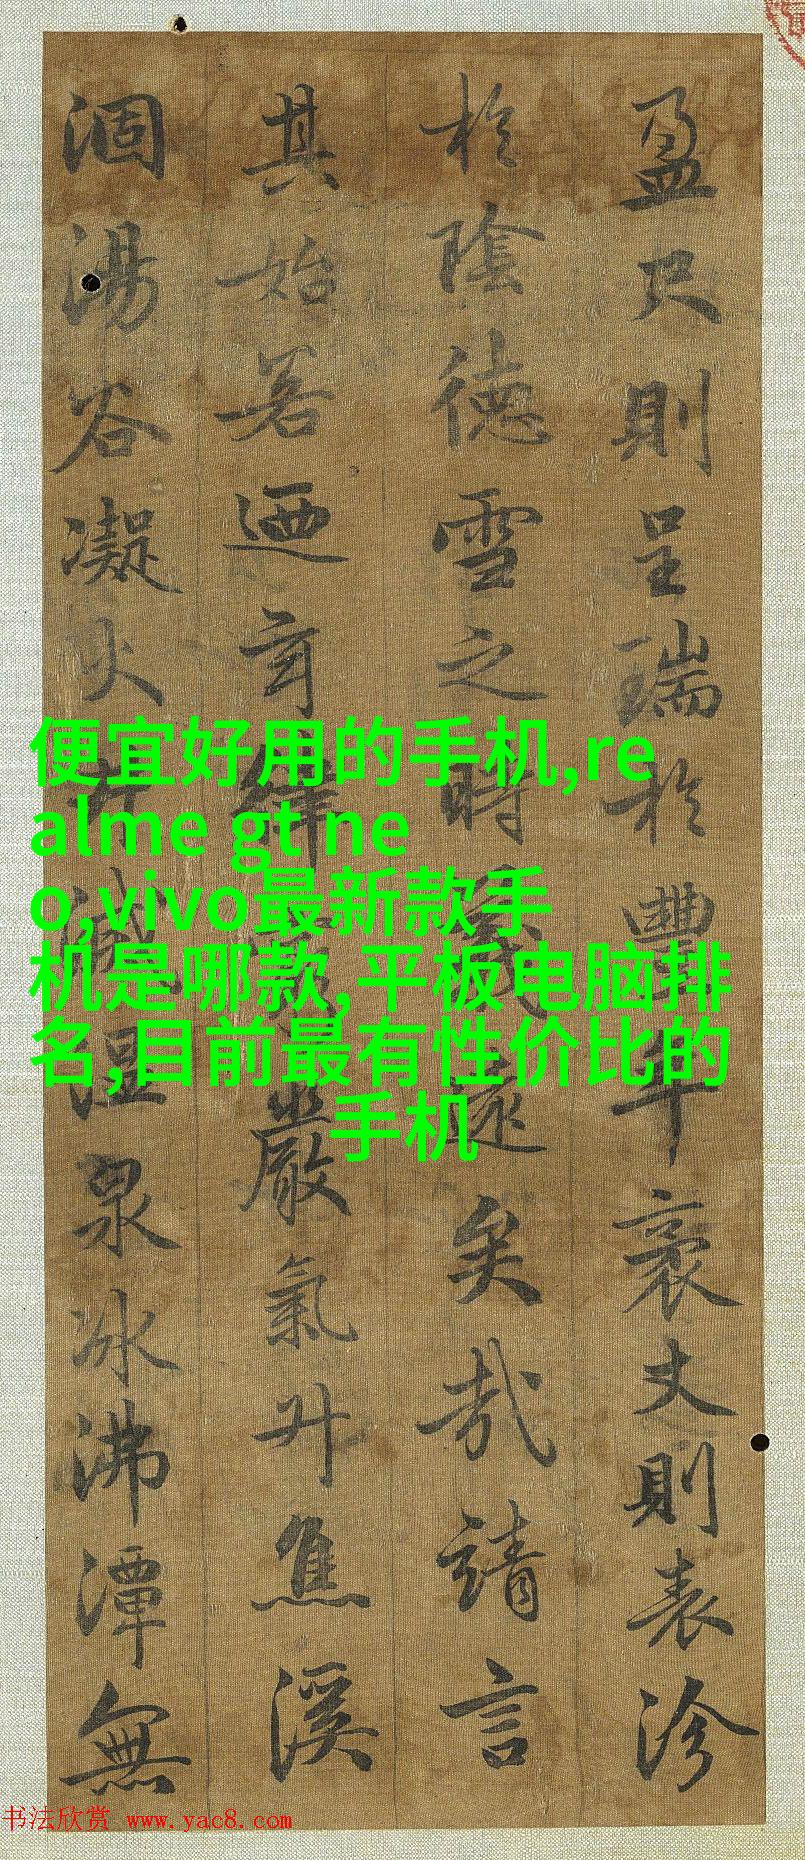 盈尺則呈瑞於豐年袤丈則表沴
於陰德雪之時義遠矣哉請言
其始若迺玄律嚴氣升焦溪
涸湯谷凝火井滅温泉冰沸潭無
便宜好用的手机,re
alme gt ne
o,vivo最新款手
机是哪款,平板电脑排
名,目前最有性价比的
手机
书法欣赏 www.yac8.com